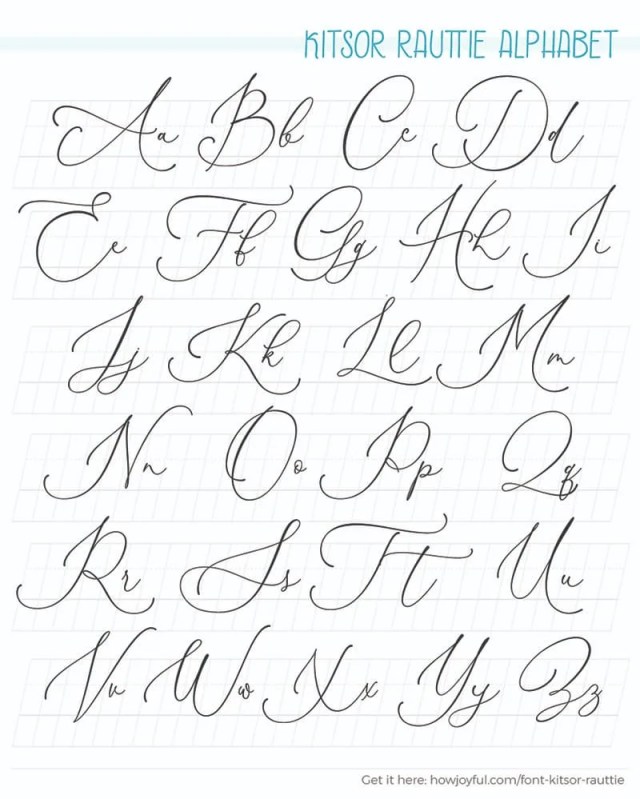 KITSOR RAUTTIE ALPHABET
Aa Bb Cc Dd
Ee Ff Gg Hh Ii
Jj Kk Ll Mm
Nn Oo Pp Qq
Rr Ss Tt Uu
Vv Ww Xx Yy Zz
Get it here: howjoyful.com/font-kitsor-rauttie